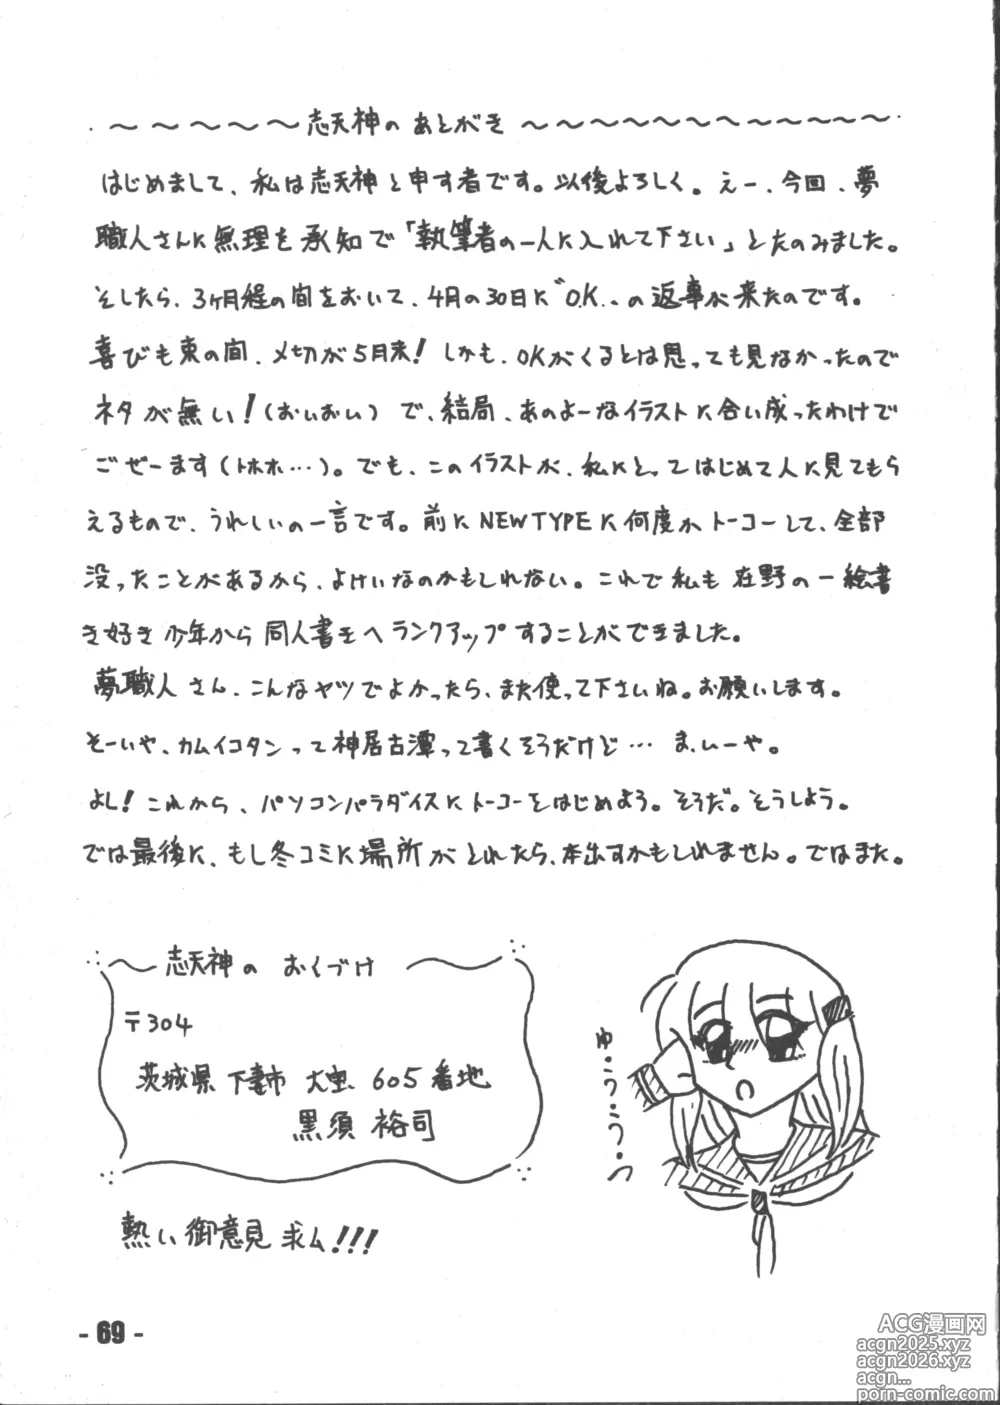 志天神の あとがき
はじめまして、私は志天神と申す者です。以後よろしく。えー、今回、夢
職人さんに無理を承知で「執筆者の一人に入れて下さい」とたのみました。
そしたら、3ヶ月程の間をおいて、4月の30日に“O.K.„の返事が来たのです。
喜びも束の間、〆切が5月末!しかも、OKがくるとは思っても見なかったので
ネタが無い!(おいおい)で、結局、あのよーなイラストに合い成ったわけで
ごぜーます(トホホ…)。でも、このイラストが、私にとってはじめて人に見てもら
えるもので、うれしいの一言です。前にNEWTYPEに何度かトーコーして、全部
没ったことがあるから、よけいなのかもしれない。これで私も在野の一絵書
き好き少年から同人書きへランクアップすることができました。
夢職人さん、こんなヤツでよかったら、また使って下さいね。お願いします。
そーいや、カムイコタンって神居古潭って書くそうだけど… ま、いーや。
よし!これから、パソコンパラダイスにトーコーをはじめよう。そうだ。そうしよう。
では最後に、もし冬コミに場所がとれたら、本出すかもしれません。ではまた。
志天神の おくづけ
〒304
茨城県 下妻市 大宝 605番地
黒須 裕司
熱い御意見 求ム!!!
ゆ・うっ・うっ・
- 69 -
ACG漫画网
acgn2025.xyz
acgn2026.xyz
acgn...
porn-comic.com